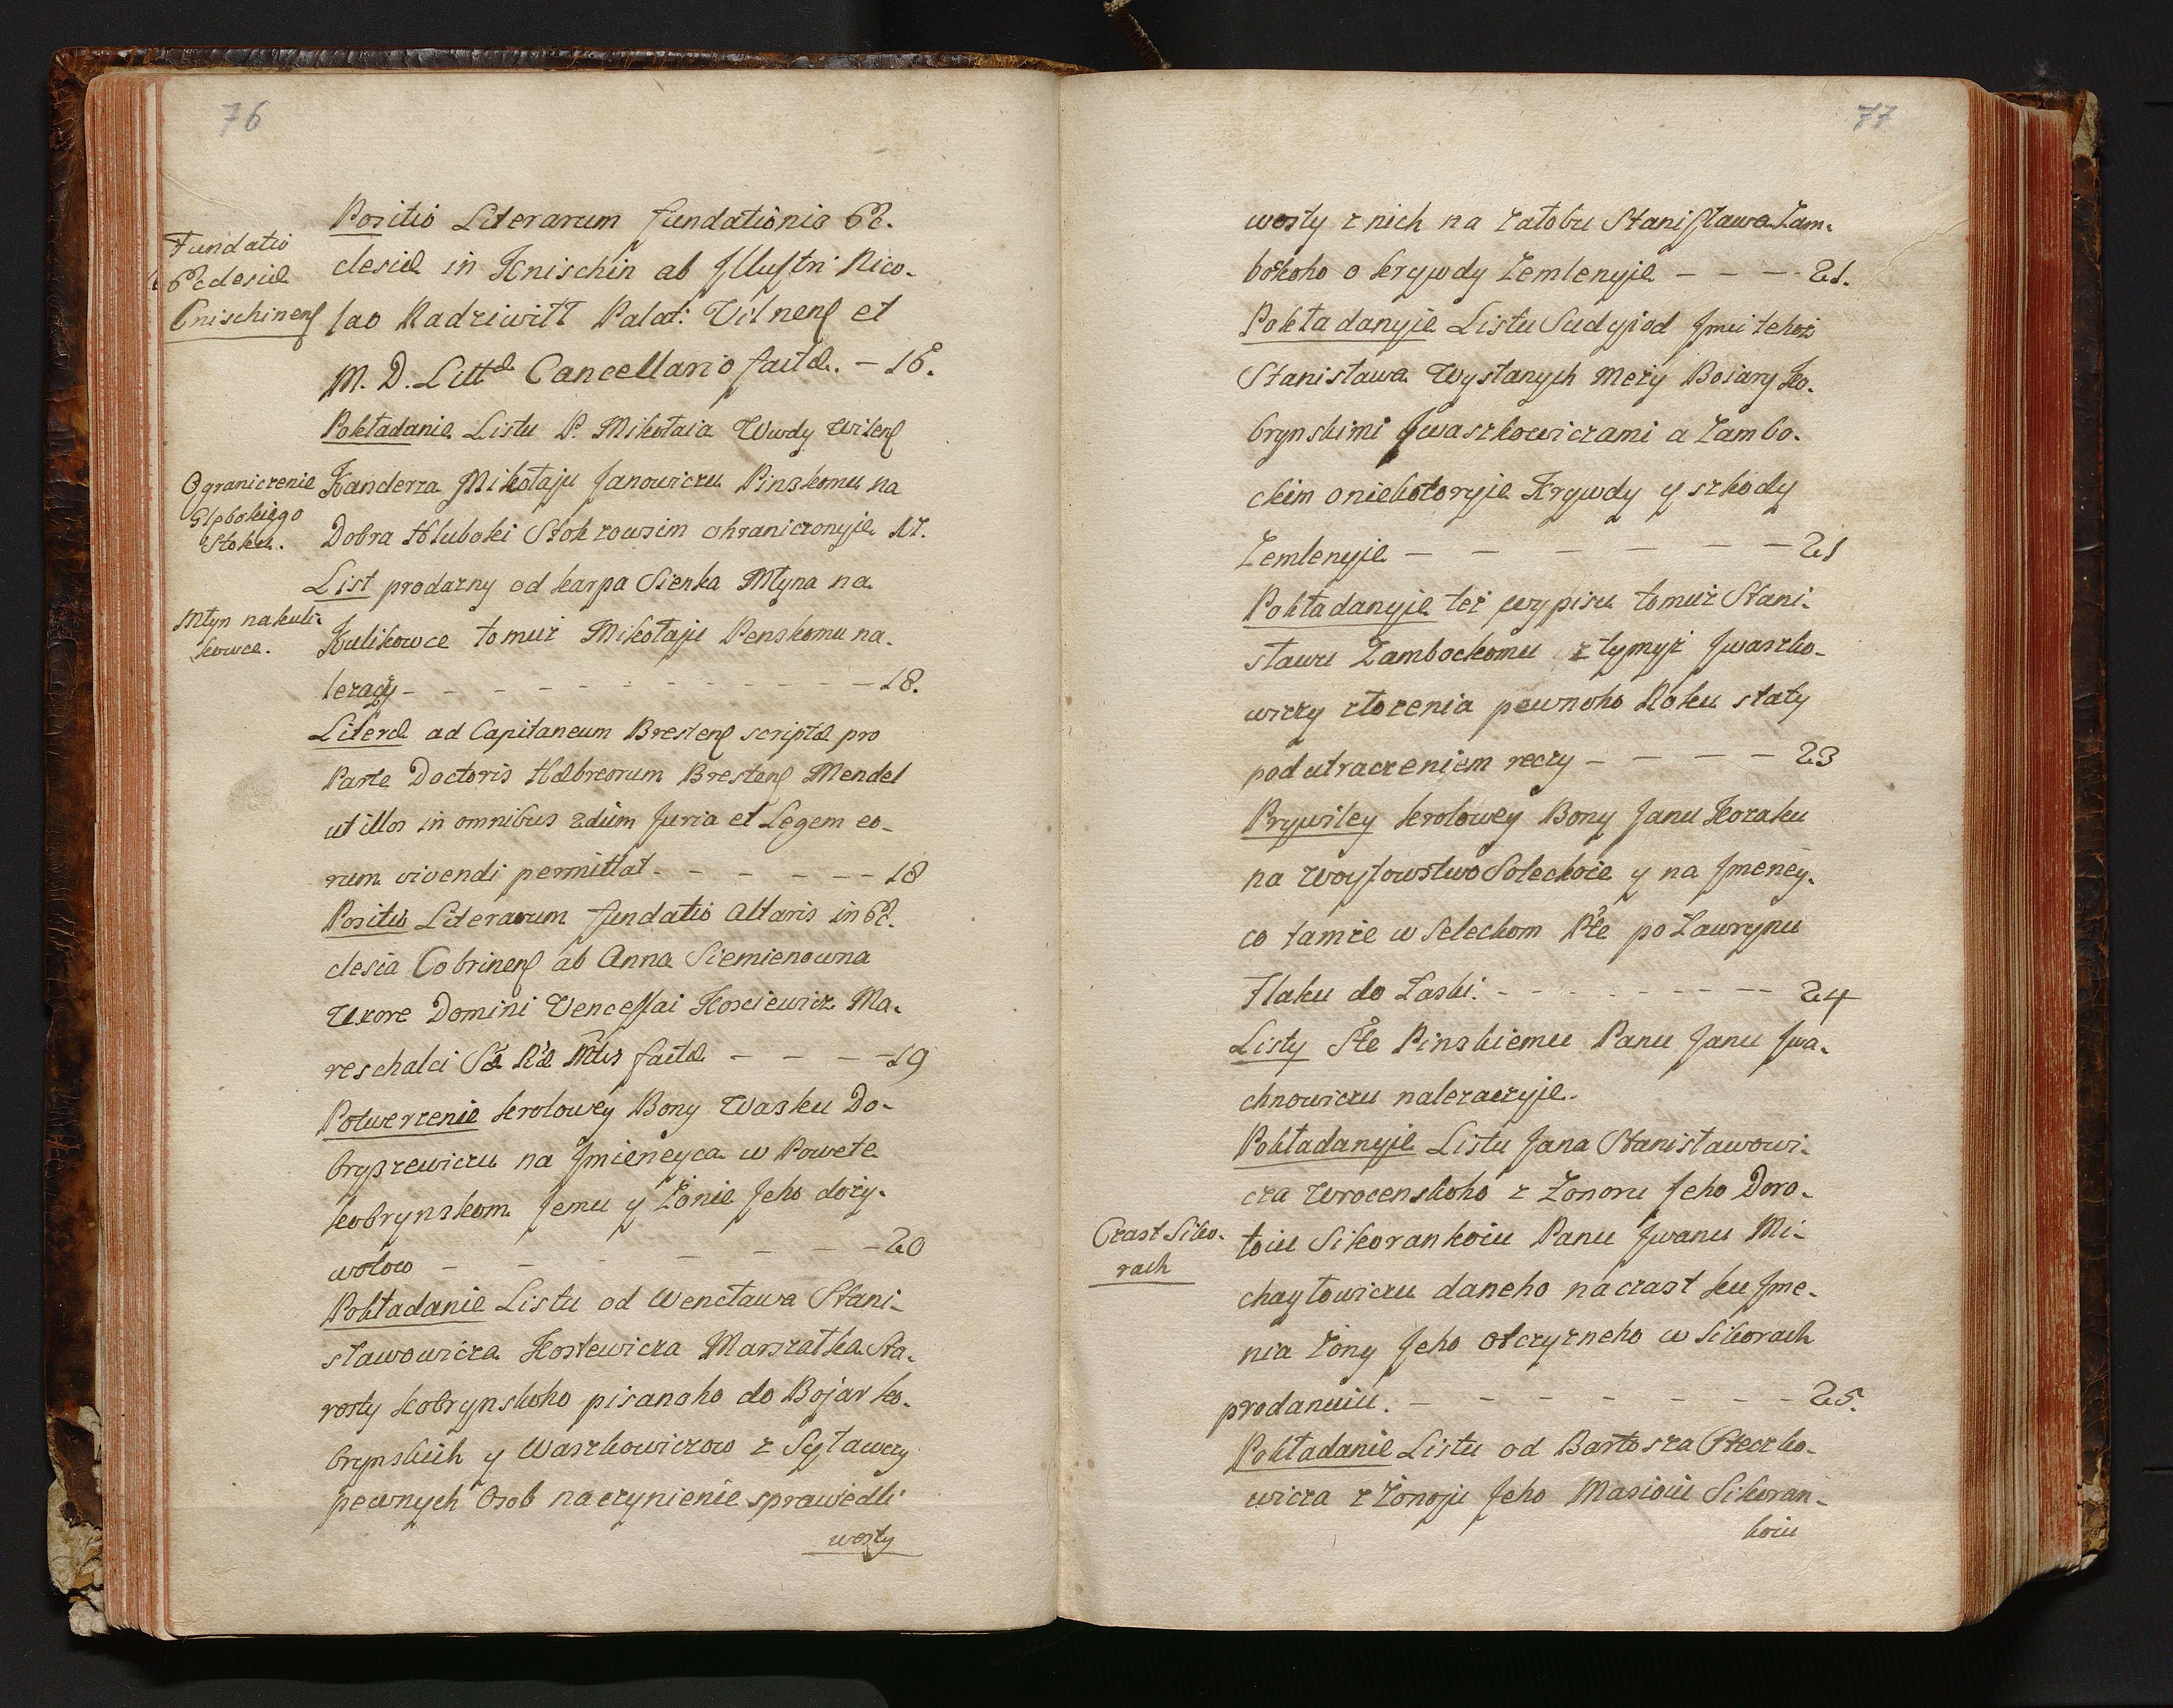 76
Positio Literarum fundationis Ec.
Fundatio
Ecclesiæ
Cnischinens
clesiæ in Knischin ab Illustri Nico-
lao Radziwiłł Palat: Vilnens et
M. D. Littæ Cancellario factæ. — 16.
Pokładanie Listu P. Mikołaia Wwdy Wilens
Ograniczenie
Głębokiego
Stoku.
Kanclerza Mikołaju Janowiczu Pinskomu na
Dobra Hluboki Stok zowsim ohraniczonyje 17.
List prodazny od karpa Sienka Młyna na
Młyn na kuli-
kowce.
Kulikowce tomuż Mikołaju Penskomu na.
lezacy — — — — — — 18.
Literæ ad Capitaneum Brestens scriptæ pro
Parte Doctoris Hæbreorum Brestens Mendel
ut illos in omnibus Juxta et Legem eo-
rum vivendi permittat — — — — — 18
Positio Literarum fundatio Altaris in Ec.
clesia Cobrinens ab Anna Siemienowna
Uxore Domini Venceslai Kosciewicz Ma.
reschalci Sæ Ræ Mtis factæ — — — — 19
Potwerzenie krolowey Bony Wasku Do-
bryszewiczu na Jmieneyca w Powete
kobrynskom Jemu y Żonie Jeho doży-
wotow — — — — — — 20
Pokładanie Listu od Wencława Stani-
sławowicza Kostewicza Marszałka Sta.
rosty kobrynskoho pisanoho do Bojar ko.
brynskich y Waszkowiczow z Sytawczy
pewnych Osob na czynienie sprawiedli
wosty
77
wosty z nich na żałobu Stanisława Zam-
bokoho o krywdy Zemlenyje — — — 21.
Pokładanyie Listu Sudyi od Jmii tehoż
Stanisława Wysłanych meży Boiary ko.
brynskimi Jwaszkowiczami a Zambo-
ckim o niekotoryje Krywdy y szkody
Zemlenyje — — — — — — 21
Pokładanyie też wypisu tomuż Stani-
sławu Zambockomu z tymyż Jwaszko-
wiczy złozenia pewnoho Roku stały
pod utraczeniem reczy — — — — 23
Prywiley krolowey Bony Janu Kozaku
na Woytowstwo Soleckoie y na Jmeney.
co tamże w Seleckom Płe po Ławrynu
Flaku do Łaski. — — — — — — 24
Listy Płe Pinskiemu Panu Janu Jwa.
chnowiczu nalezaczyje.
Pokładanyie Listu Jana Stanisławowi-
cza Wrocenskoho z Zonoru Jeho Doro-
Czast Siko-
rach
toiu Sikorankoiu Panu Jwanu Mi-
chayłowiczu daneho na czast ku Jme.
nia Żony Jeho otczyzneho w Sikorach
prodanuiu. — — — — — — 25.
Pokładanie Listu od Bartosza Steczko-
wicza z Żonoju Jeho Masioiu Sikoran-
koiu